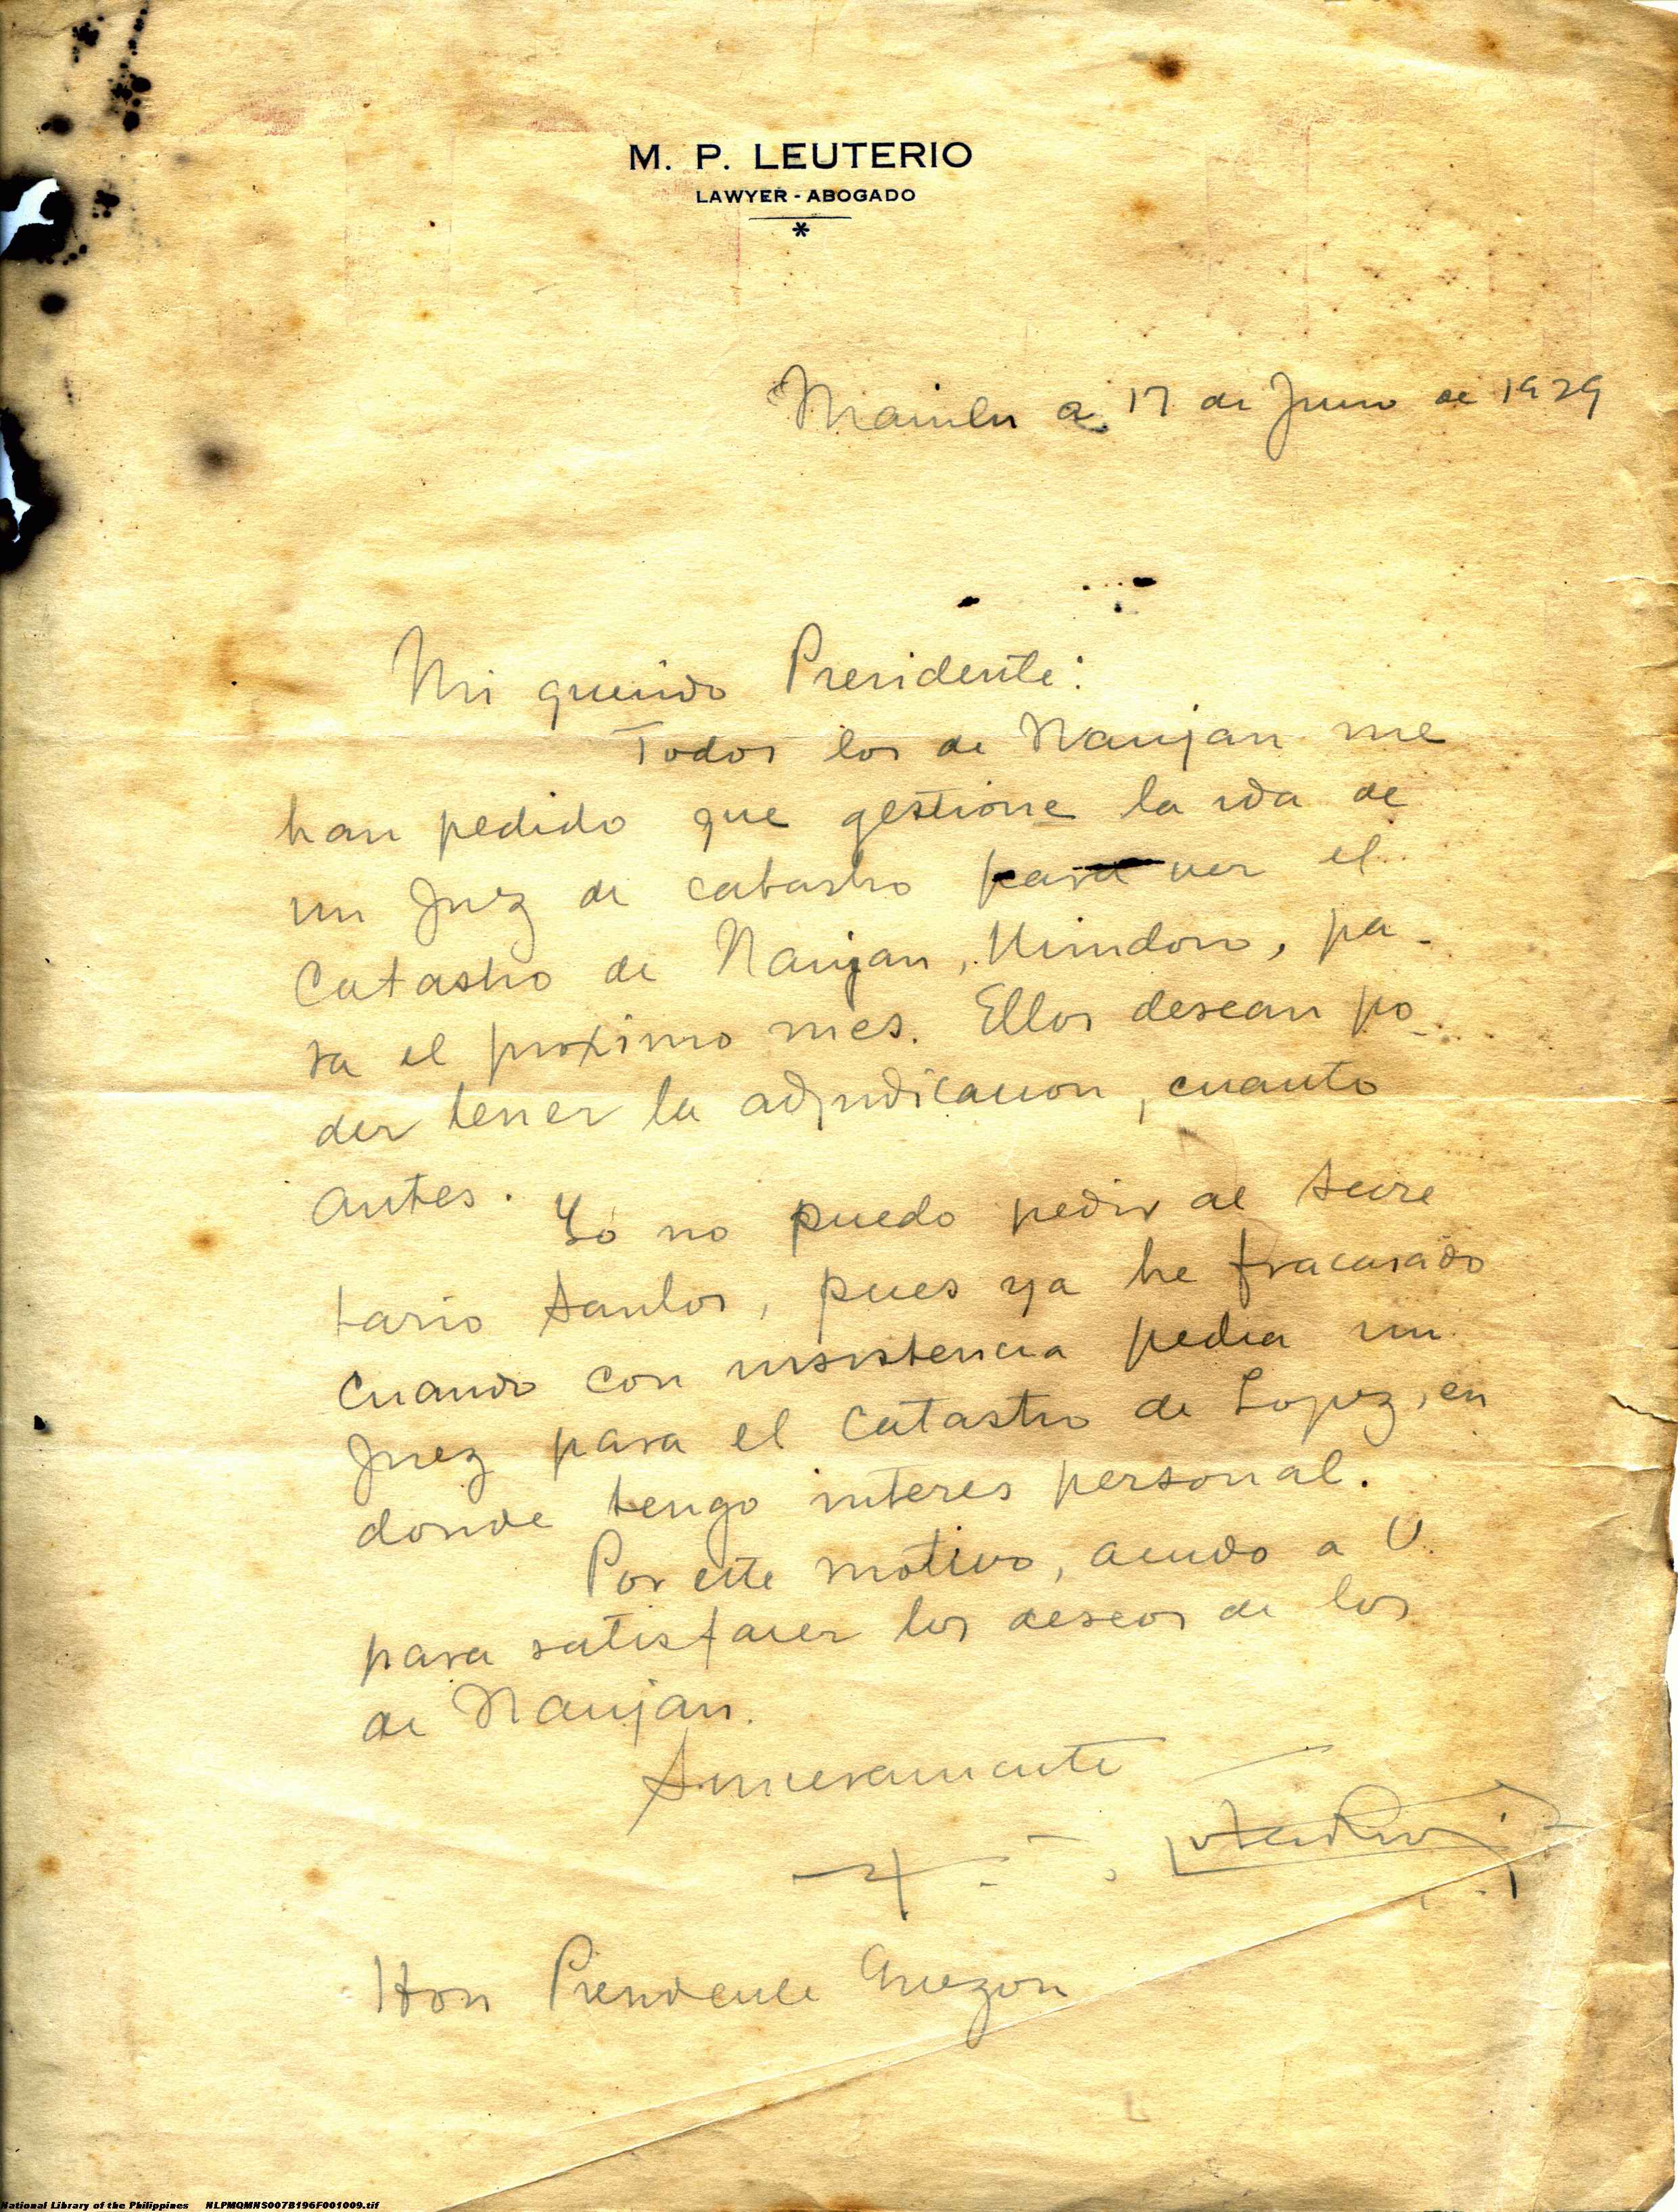 M. P. LEUTERIO
LAWYER - ABOGADO
*
Manila a 17 de Junio de 1929
Mi querido Presidente:
Todos los de Naujan me
han pedido que gestione la ida de
un Juez de catastro para ver el
Catastro de Naujan, Mindoro, pa-
ra el proximo mes. Ellos desean po-
der tener la adjudicacion, cuanto
antes. Yo no puedo pedir al Secre
tario Santos, pues ya he fracasado
cuando con insistencia pedia un
Juez para el Catastro de Lopez, en
donde tengo interes personal.
Por este motivo, acudo a U.
para satisfacer los deseos de los
de Naujan.
Sinceramente
Hon Presidente Quezon
National Library of the Philippines NLPMQMNS007B196F001009.tif